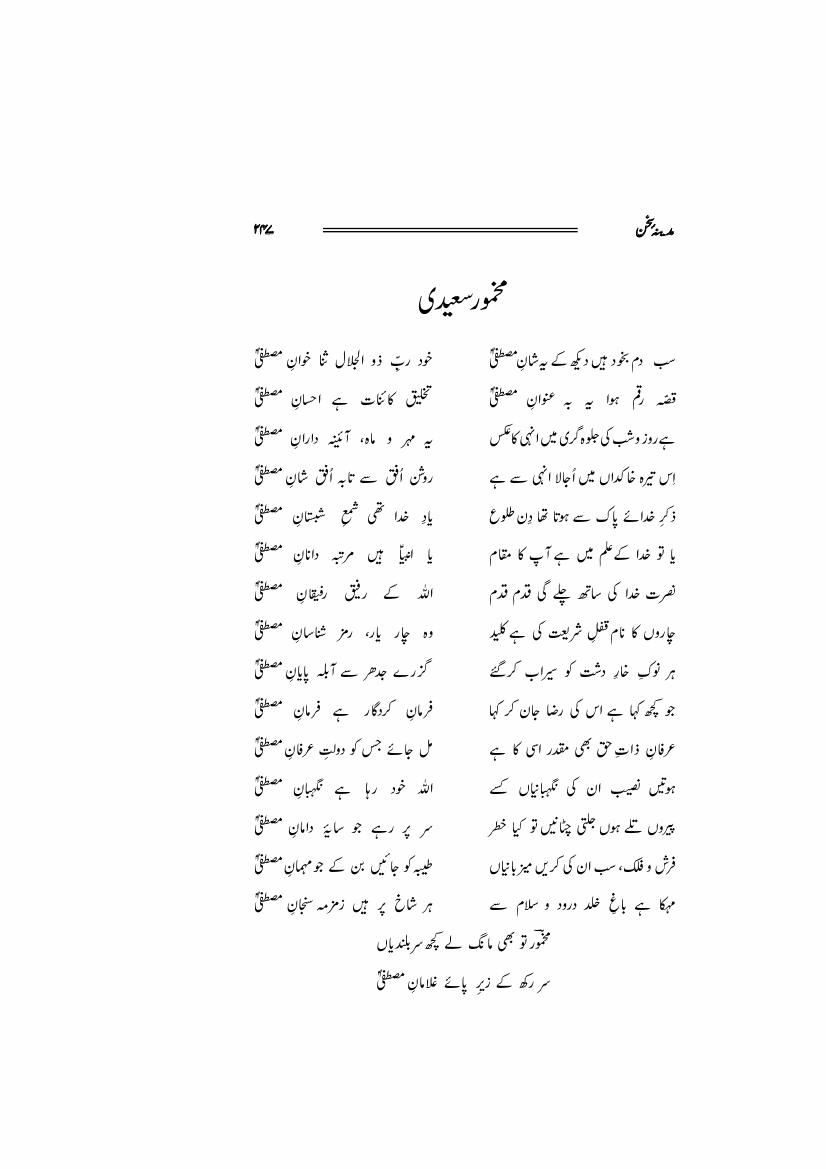 مدینۂ سخن ۲۴۷
مخمور سعیدی
سب دم بخود ہیں دیکھ کے یہ شانِ مصطفیؐ خود ربِّ ذو الجلال ثنا خوانِ مصطفیؐ
قصّہ رقم ہوا یہ بہ عنوانِ مصطفیؐ تخلیق کائنات ہے احسانِ مصطفیؐ
ہے روز و شب کی جلوہ گری میں انہی کا عکس یہ مہر و ماہ، آئینہ دارانِ مصطفیؐ
اِس تیرہ خاکداں میں اُجالا انہی سے ہے روشن اُفق سے تابہ اُفق شانِ مصطفیؐ
ذکرِ خدائے پاک سے ہوتا تھا دِن طلوع یادِ خدا تھی شمعِ شبستانِ مصطفیؐ
یا تو خدا کے علم میں ہے آپ کا مقام یا انبیاؑ ہیں مرتبہ دانانِ مصطفیؐ
نصرت خدا کی ساتھ چلے گی قدم قدم اللہ کے رفیق رفیقانِ مصطفیؐ
چاروں کا نام قفلِ شریعت کی ہے کلید وہ چار یار، رمز شناسانِ مصطفیؐ
ہر نوکِ خارِ دشت کو سیراب کرگئے گزرے جدھر سے آبلہ پایانِ مصطفیؐ
جو کچھ کہا ہے اس کی رضا جان کر کہا فرمانِ کردگار ہے فرمانِ مصطفیؐ
عرفانِ ذاتِ حق بھی مقدر اسی کا ہے مل جائے جس کو دولتِ عرفانِ مصطفیؐ
ہوتیں نصیب ان کی نگہبانیاں کسے اللہ خود رہا ہے نگہبانِ مصطفیؐ
پیروں تلے ہوں جلتی چٹانیں تو کیا خطر سر پر رہے جو سایۂ دامانِ مصطفیؐ
فرش و فلک، سب ان کی کریں میزبانیاں طیبہ کو جائیں بن کے جو مہمانِ مصطفیؐ
مہکا ہے باغِ خلد درود و سلام سے ہر شاخ پر ہیں زمزمہ سنجانِ مصطفیؐ
مخمورؔ تو بھی مانگ لے کچھ سربلندیاں
سر رکھ کے زیرِ پائے غلامانِ مصطفیؐ